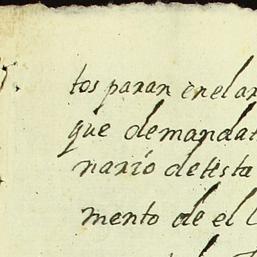 tos paran en el ar
que demandat
nario de testa
mento de el l